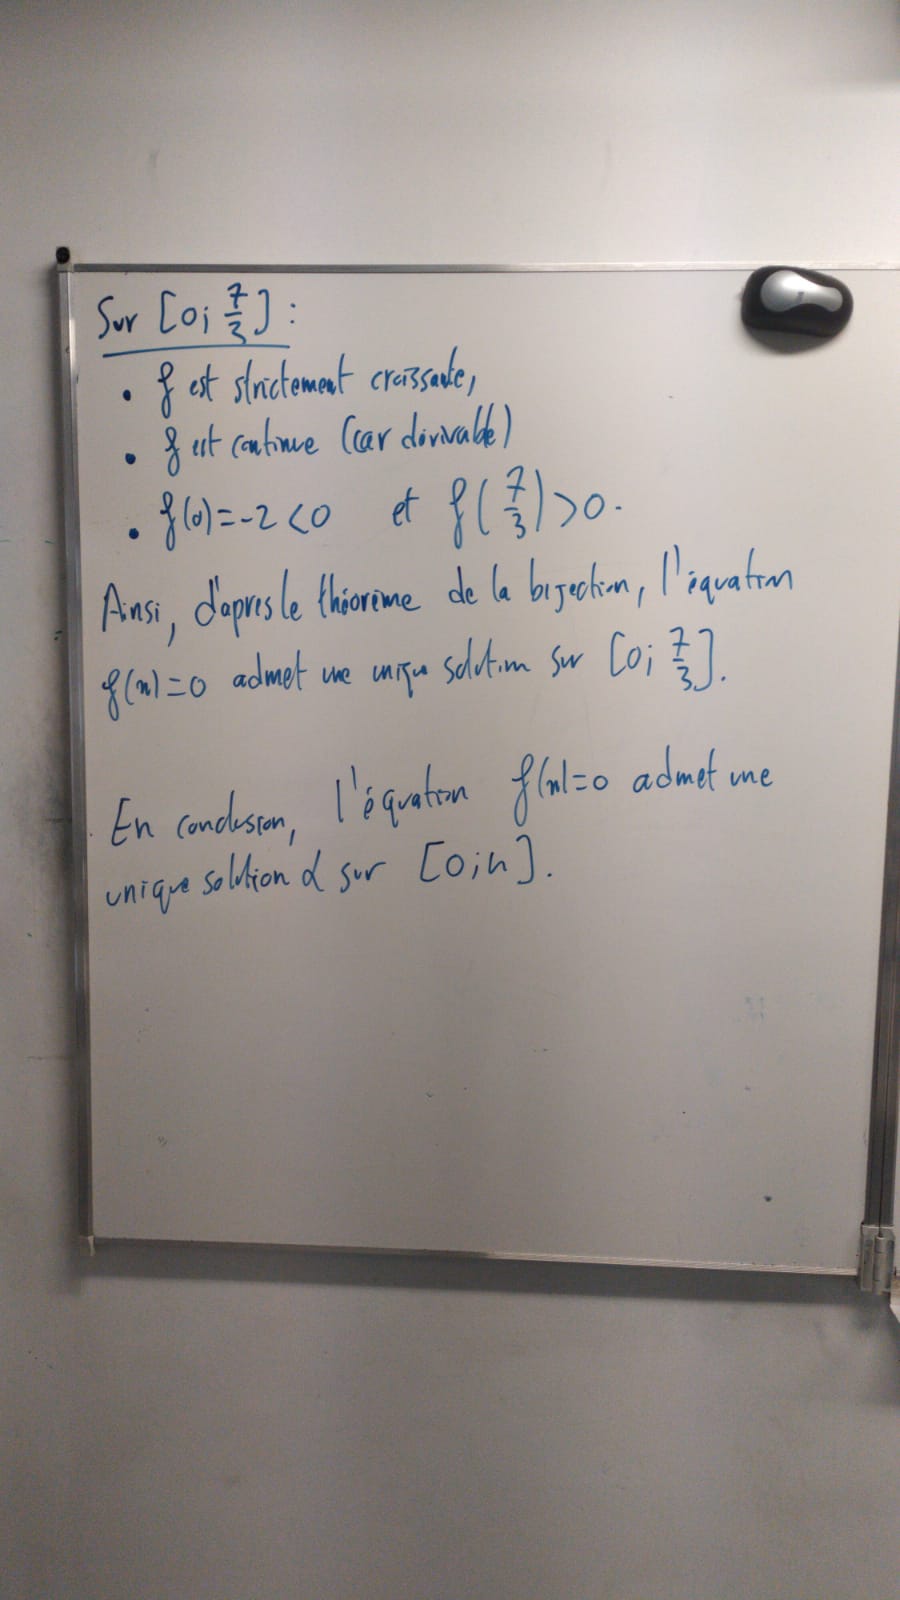 Sur [0; 7/3] :
• f est strictement croissante,
• f est continue (car dérivable)
• f(0)=-2<0 et f(7/3)>0.
Ainsi, d'après le théorème de la bijection, l'équation
f(x)=0 admet une unique solution sur [0; 7/3].
En conclusion, l'équation f(x)=0 admet une
unique solution α sur [0;4].